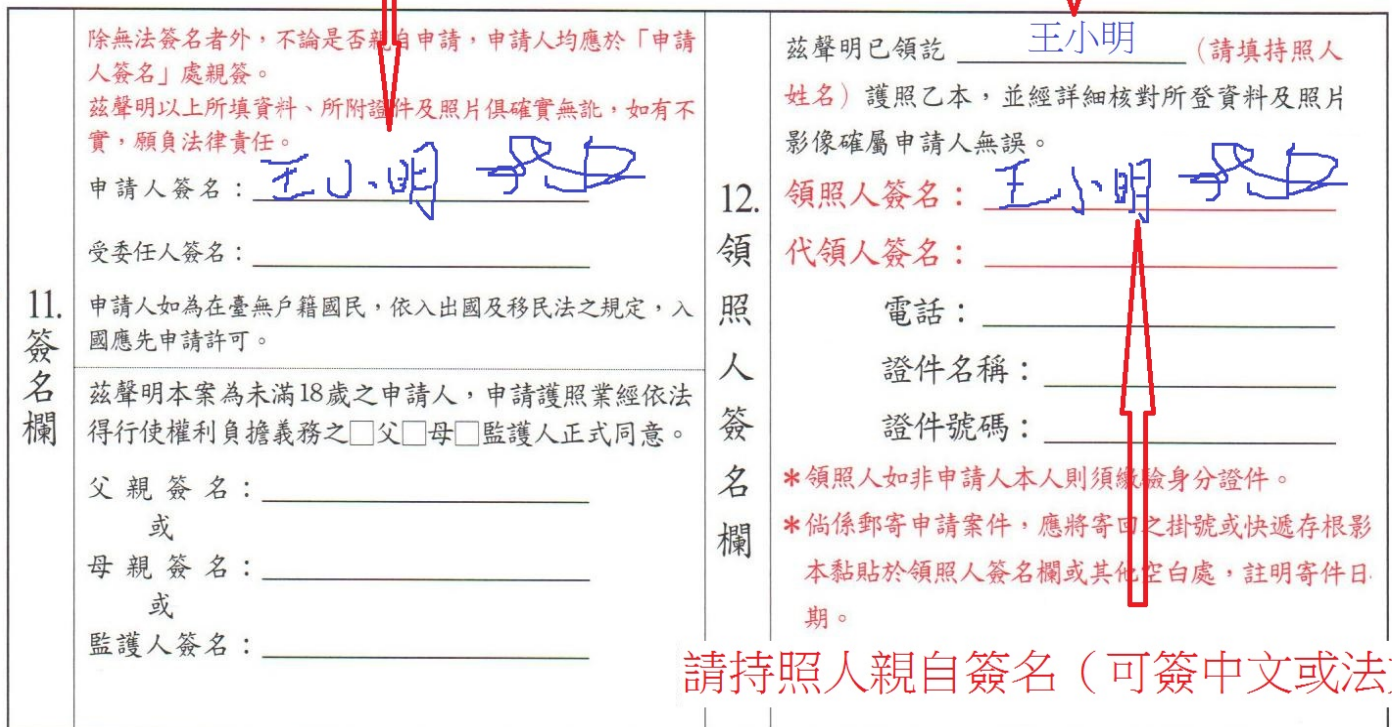 11.
簽
名
欄
除無法簽名者外，不論是否親自申請，申請人均應於「申請
人簽名」處親簽。
茲聲明以上所填資料、所附證件及照片俱確實無訛，如有不
實，願負法律責任。
申請人簽名：王小明
受委任人簽名：
申請人如為在臺無戶籍國民，依入出國及移民法之規定，入
國應先申請許可。
茲聲明本案為未滿18歲之申請人，申請護照業經依法
得行使權利負擔義務之□父□母□監護人正式同意。
父親簽名：
或
母親簽名：
或
監護人簽名：
12.
領
照
人
簽
名
欄
茲聲明已領訖 王小明 （請填持照人
姓名）護照乙本，並經詳細核對所登資料及照片
影像確屬申請人無誤。
領照人簽名：王小明
代領人簽名：
電話：
證件名稱：
證件號碼：
*領照人如非申請人本人則須繳驗身分證件。
*倘係郵寄申請案件，應將寄回之掛號或快遞存根影
本黏貼於領照人簽名欄或其他空白處，註明寄件日
期。
請持照人親自簽名（可簽中文或法